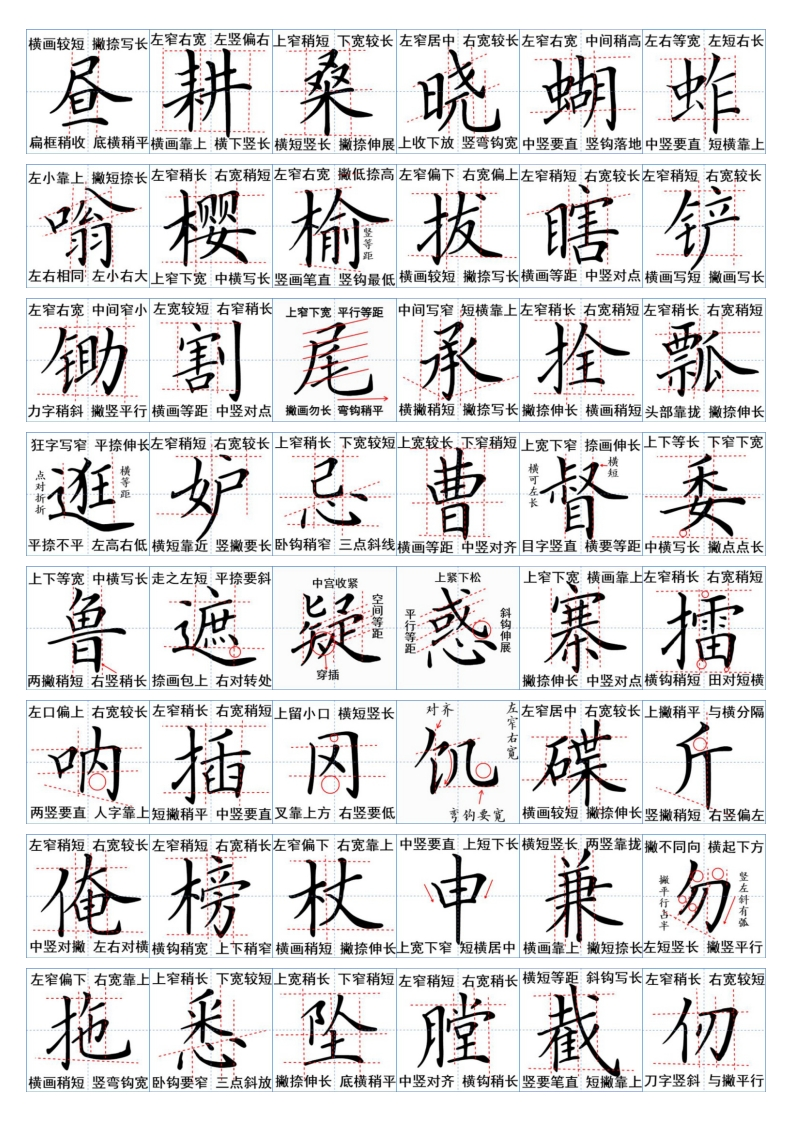 横画较短 撇捺写长
昼
扁框稍收 底横稍平
左窄右宽 左竖偏右
耕
横画靠上 横下竖长
上窄稍短 下宽较长
桑
横短竖长 撇捺伸展
左窄居中 右宽较长
晓
上收下放 竖弯钩宽
左窄右宽 中间稍高
蝴
中竖要直 竖钩落地
左右等宽 左短右长
蚱
中竖要直 短横靠上
左小靠上 撇短捺长
嗡
左右相同 左小右大
左窄稍长 右宽稍短
樱
上窄下宽 中横写长
左窄右宽 撇低捺高
榆
竖等距
竖画笔直 竖钩最低
左窄偏下 右宽偏上
拔
横画较短 撇捺写长
左窄稍短 右宽较长
瞎
横画等距 中竖对点
左窄稍短 右宽较长
铲
横画写短 撇画写长
左窄右宽 中间窄小
锄
力字稍斜 撇竖平行
左宽较短 右窄稍长
割
横画等距 中竖对点
上窄下宽 平行等距
尾
撇画勿长 弯钩稍平
中间写窄 短横靠上
承
横撇稍短 撇捺写长
左窄稍长 右宽稍短
拴
撇捺伸长 横画稍短
左窄稍长 右宽稍短
瓢
头部靠拢 撇捺伸长
狂字写窄 平捺伸长
点对折折
逛
横等距
平捺不平 左高右低
左窄稍短 右宽较长
妒
横短靠近 竖撇要长
上窄稍长 下宽较短
忌
卧钩稍窄 三点斜线
上宽较长 下窄稍短
曹
横画等距 中竖对齐
上宽下窄 捺画伸长
横可左长
督
横短
目字竖直 横要等距
上下等长 下窄下宽
委
中横写长 撇点点长
上下等宽 中横写长
鲁
两撇稍短 右竖稍长
走之左短 平捺要斜
遮
捺画包上 右对转处
中宫收紧
疑
空间等距
穿插
上紧下松
平行等距
惑
斜钩伸展
上窄下宽 横画靠上
寨
撇捺伸长 中竖对点
左窄稍长 右宽稍短
擂
横钩稍短 田对短横
左口偏上 右宽较长
呐
两竖要直 人字靠上
左窄稍长 右宽稍短
插
短撇稍平 中竖要直
上留小口 横短竖长
冈
叉靠上方 右竖要低
对齐
左窄右宽
饥
弯钩要宽
左窄居中 右宽较长
碟
横画较短 撇捺伸长
上撇稍平 与横分隔
斤
竖撇稍短 右竖偏左
左窄稍短 右宽较长
俺
中竖对撇 左右对横
左窄稍短 右宽稍长
榜
横钩稍宽 上下稍窄
左窄偏下 右宽靠上
杖
横画稍短 撇捺伸长
中竖要直 上短下长
申
上宽下窄 短横居中
横短竖长 两竖靠拢
兼
横画靠上 撇短捺长
撇不同向 横起下方
撇平行占半
勿
竖左斜有弧
左短竖长 撇竖平行
左窄偏下 右宽靠上
拖
横画稍短 竖弯钩宽
上窄稍长 下宽较短
悉
卧钩要窄 三点斜放
上宽稍长 下窄稍短
坠
撇捺伸长 底横稍平
左窄稍短 右宽稍长
膛
中竖对齐 横钩稍长
横短等距 斜钩写长
截
竖要笔直 短撇靠上
左窄稍长 右宽较短
仞
刀字竖斜 与撇平行